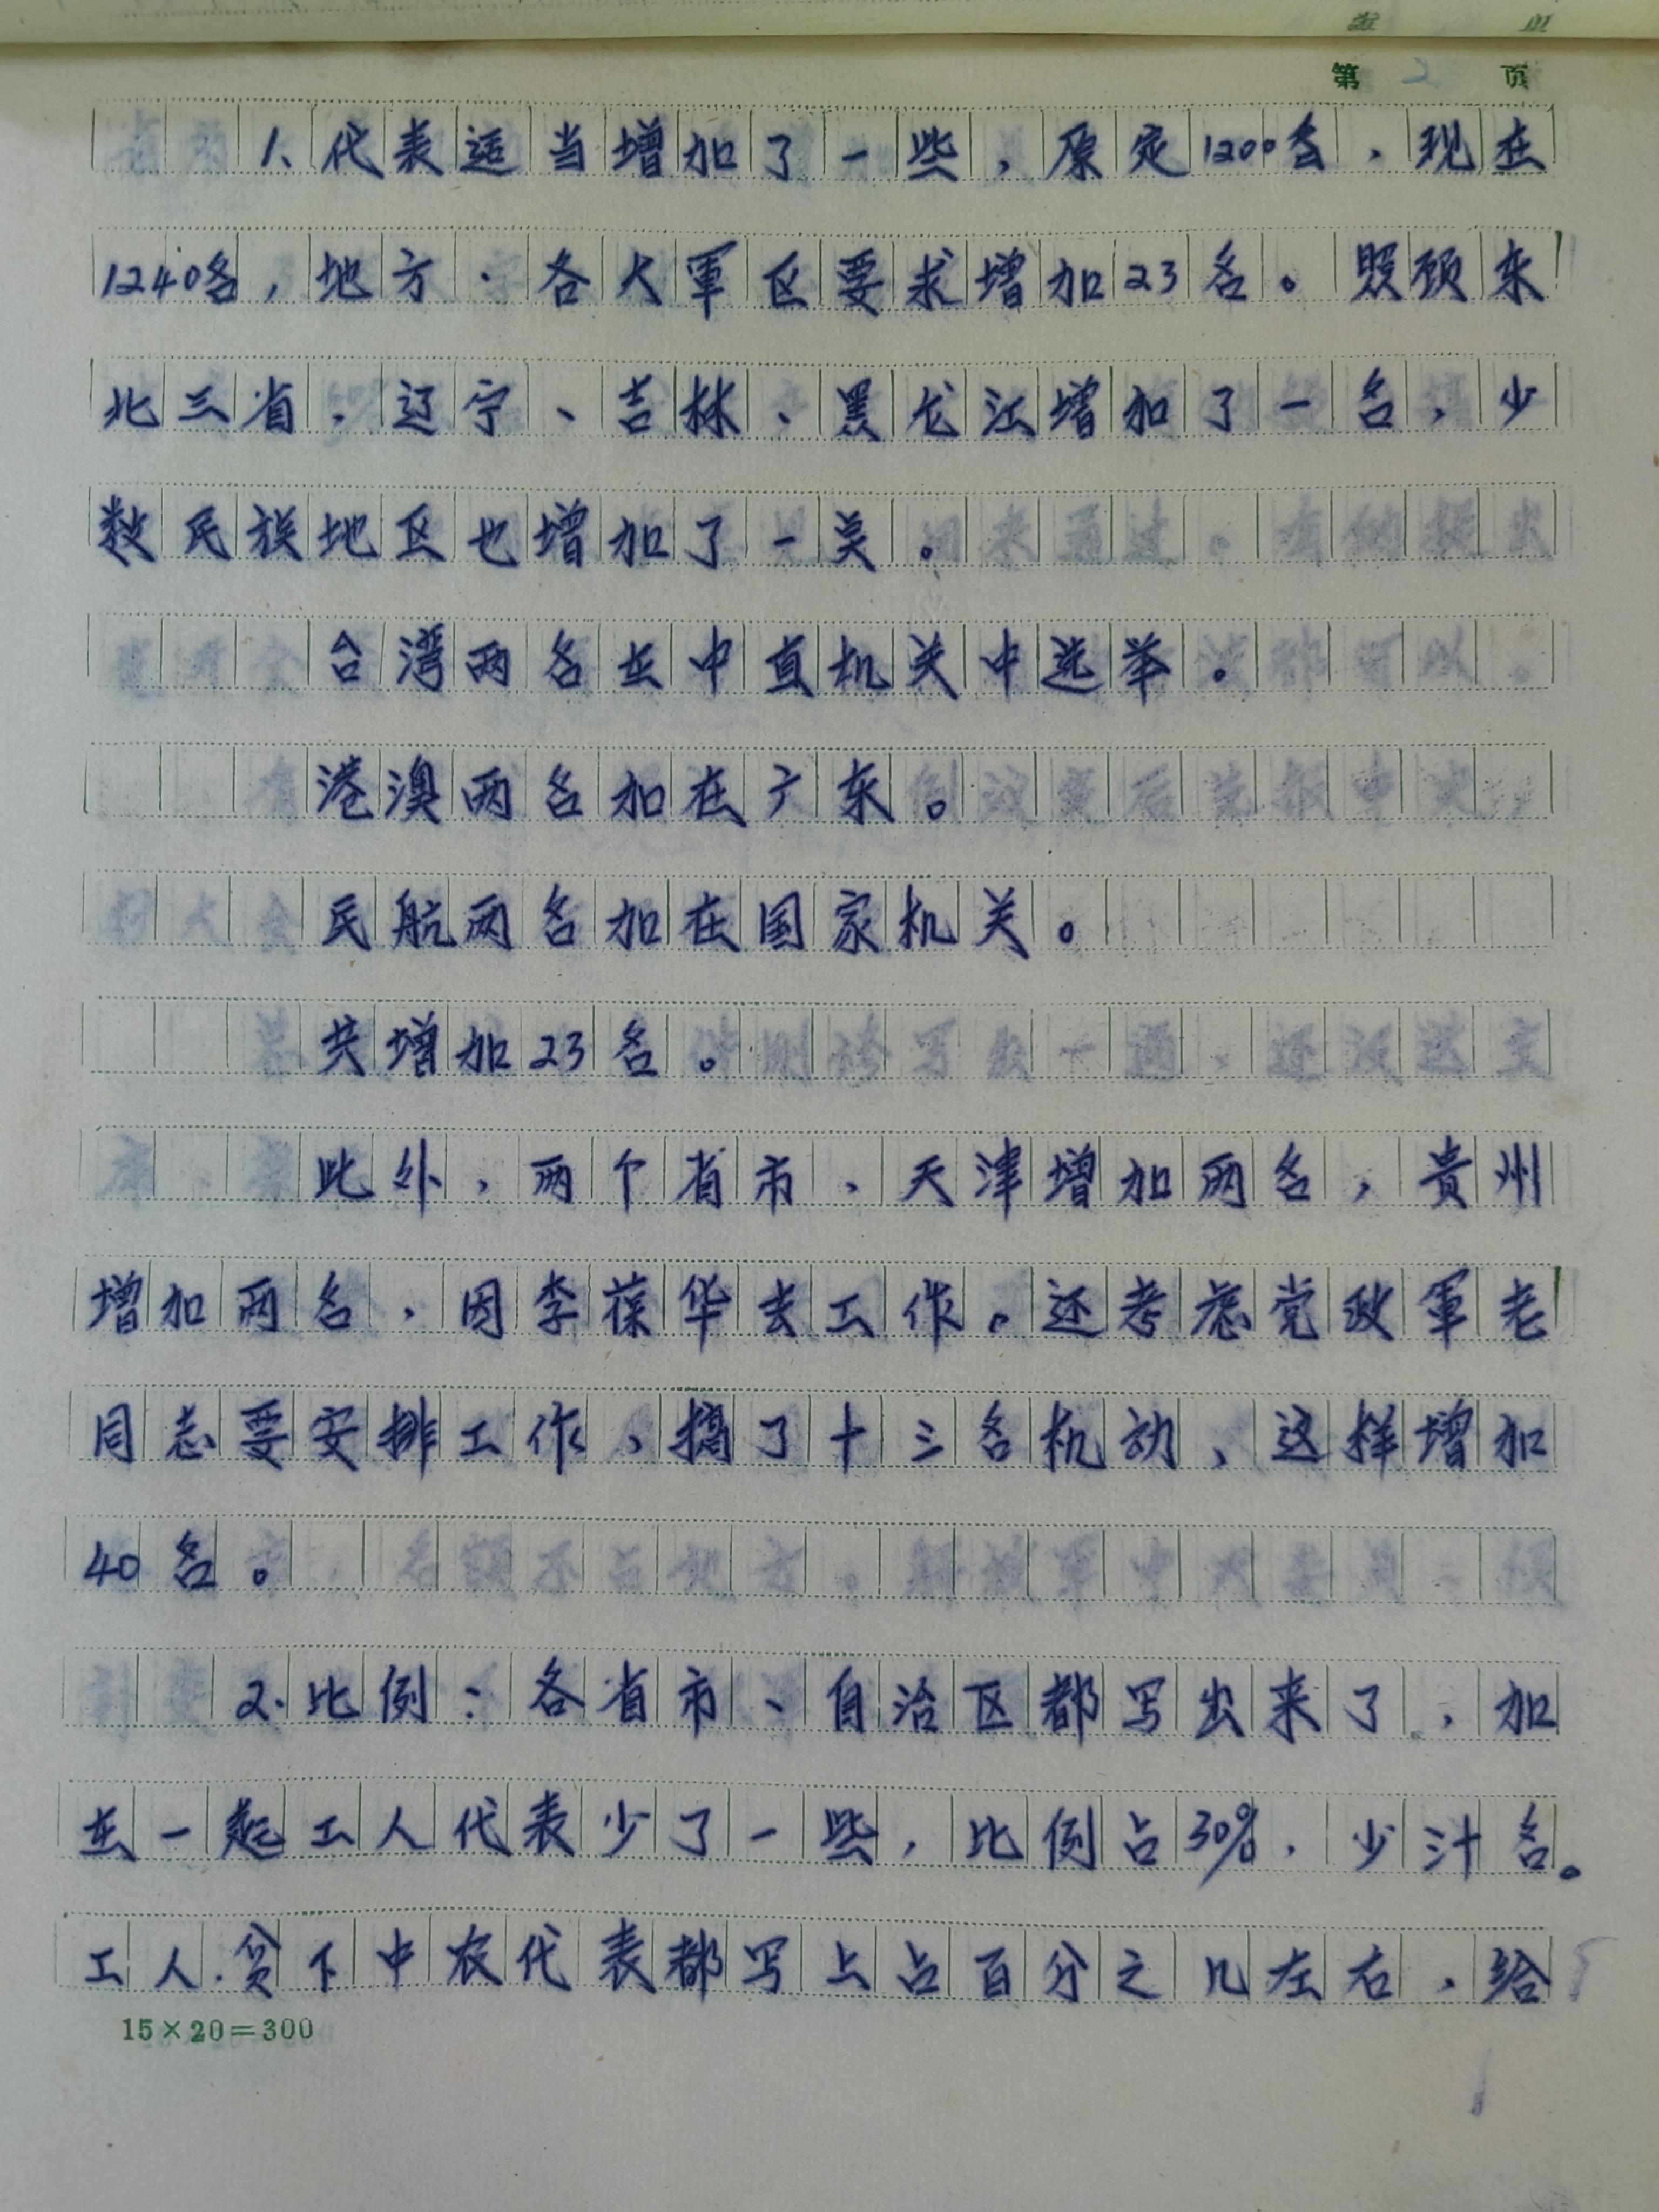 第 2 页
1、代表适当增加了一些，原定1200名，现在
1240名，地方、各大軍区要求增加23名。照顾东
北三省，辽宁、吉林、黑龙江增加了一名，少
数民族地区也增加了一奌。
台湾两名在中直机关中选举。
港澳两名加在广东。
民航两名加在国家机关。
共增加23名。
此外，两个省市，天津增加两名，贵州
增加两名，因李葆华去工作。还考虑党政軍老
同志要安排工作，搞了十三名机动，这样增加
40名。
2.比例：各省市、自治区都写出来了，加
在一起工人代表少了一些，比例占30%，少汁名。
工人.贫下中农代表都写上占百分之几左右，给
15×20=300